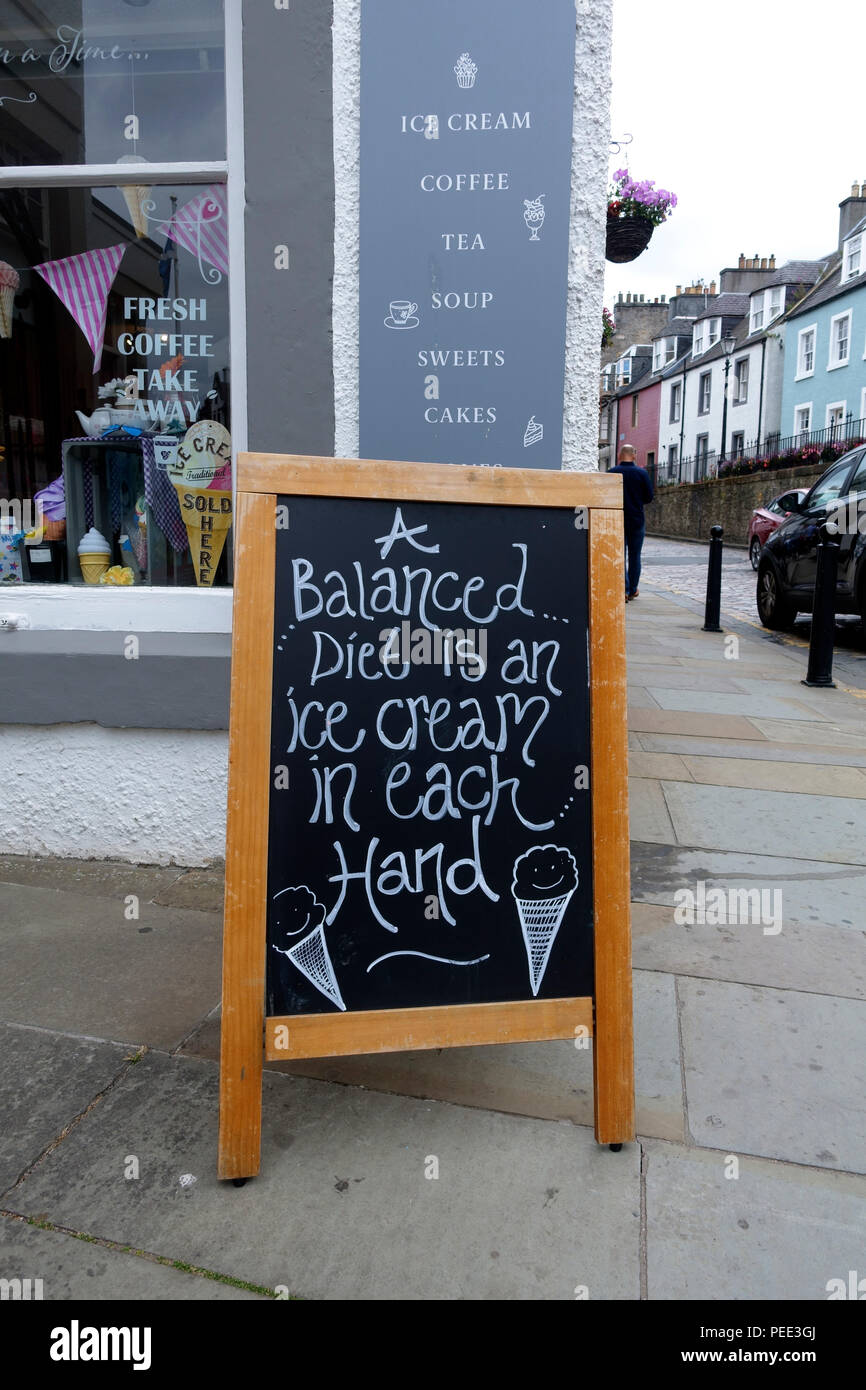 n a Time...
ICE CREAM
COFFEE
TEA
SOUP
SWEETS
CAKES
FRESH
COFFEE
TAKE
AWAY
ICE CREAM
Traditional
SOLD
HERE
A
Balanced...
Diet is an
ice cream
in each
Hand
alamy
Image ID: PEE3GJ
www.alamy.com